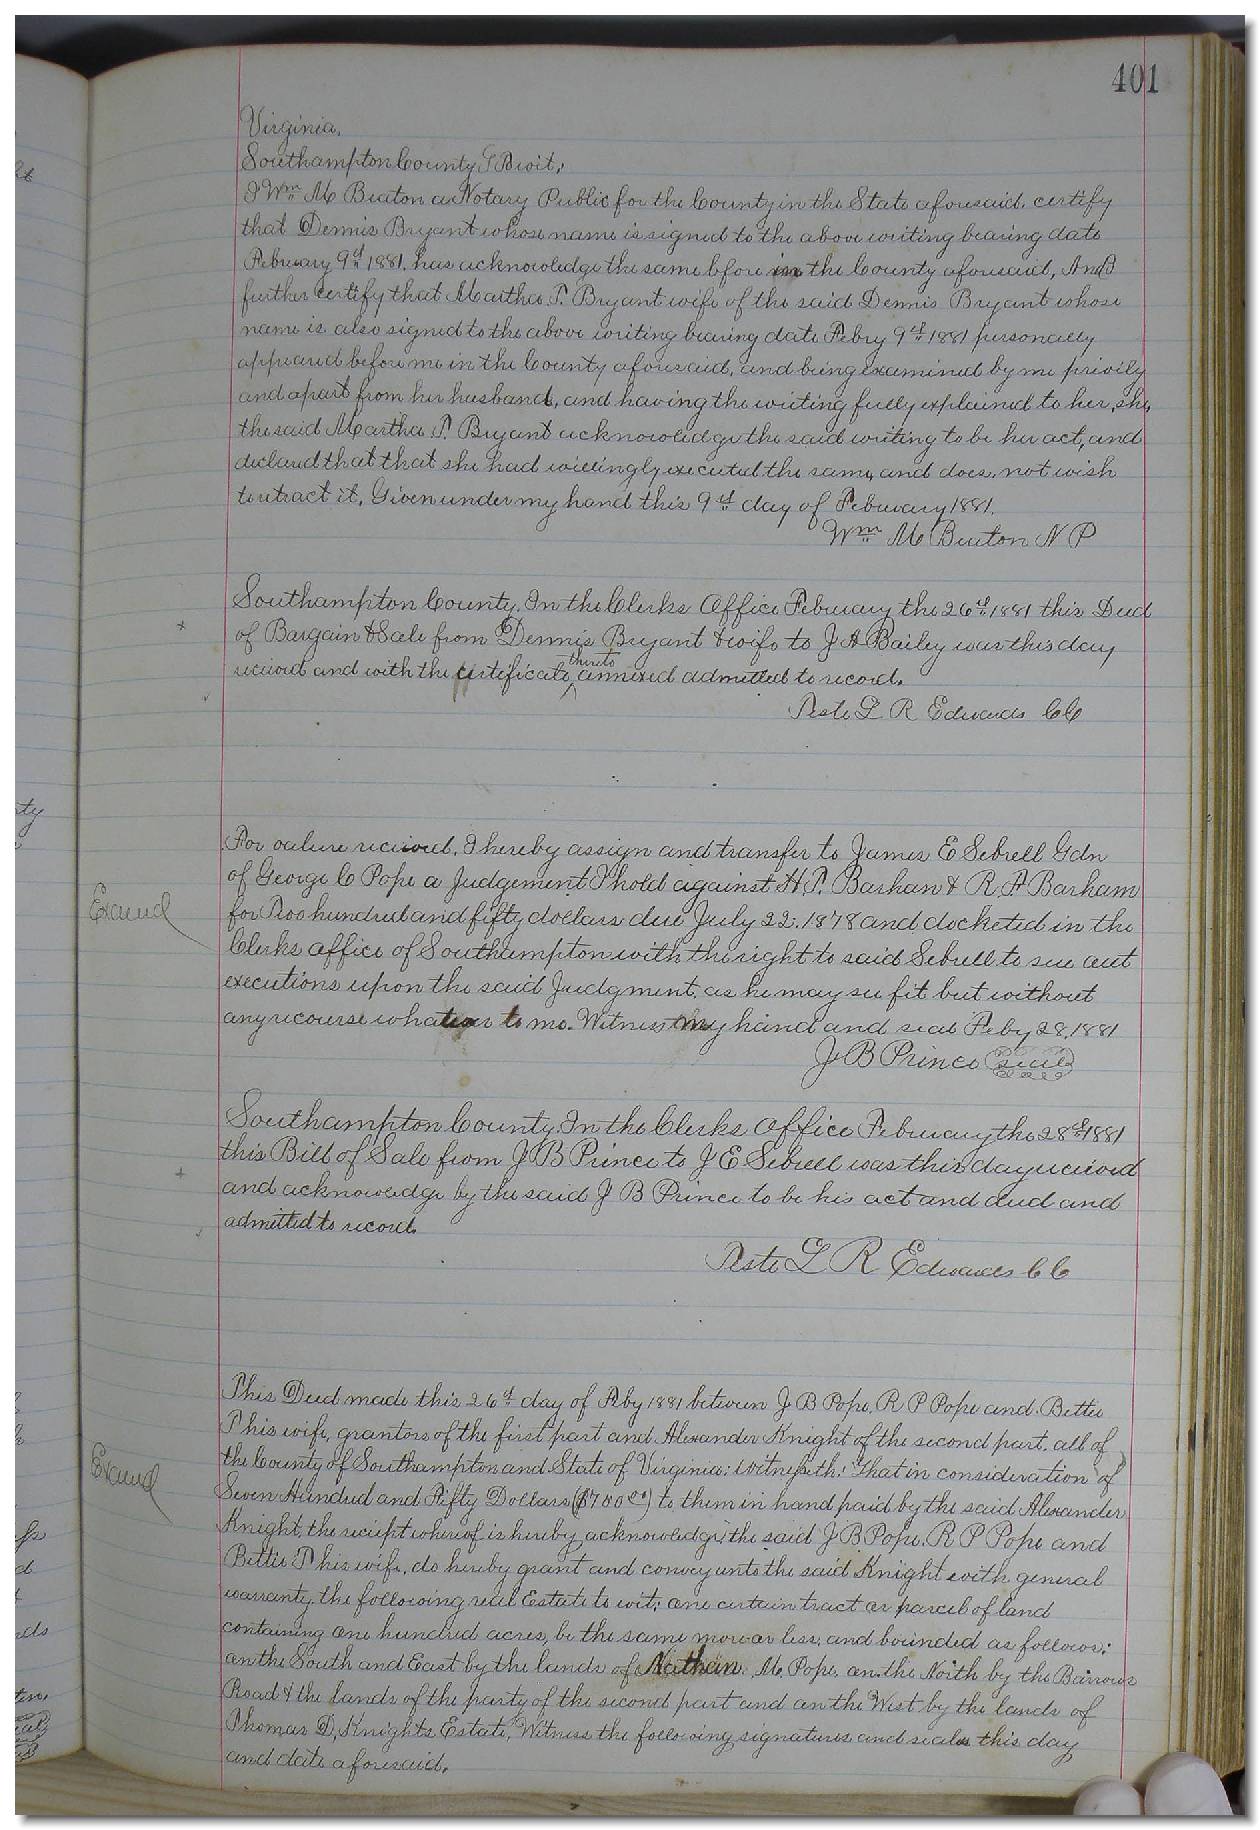 401
Virginia.
Southampton County To wit,
I Wm. M Buxton a Notary Public for the County in the State aforesaid, certify
that Dennis Bryant whose name is signed to the above writing bearing date
February 9th 1881. has acknowledge the same bfore in the County aforesaid, And
further certify that Martha T. Bryant wife of the said Dennis Bryant whose
name is also signed to the above writing bearing date Febry 9th 1881 personally
appeared before me in the County aforesaid, and being examined by me privily
and apart from her husband, and having the writing fully explained to her, she,
the said Martha T. Bryant acknowledge the said writing to be her act, and
declared that that she had willingly executed the same, and does, not wish
to retract it, Given under my hand this 9th day of February 1881.
Wm. M Buxton N P
Southampton County, In the Clerks Office February the 26th 1881 this Deed
of Bargain & Sale from Dennis Bryant & wife to J A Bailey was this day
received and with the certificate thereto annexed admitted to record.
Teste L R Edwards CC
For valure received, I hereby assign and transfer to James E Sebrell Gdn
of George C Pope a Judgement I hold against H T. Barhan & R. A Barham
Examd
for Two hundred and fifty dollars due July 22. 1878 and docketed in the
Clerks Office of Southampton with the right to said Sebrell to sue out
executions upon the said Judgment, as he may see fit but without
any recourse whatever to me. Witness my hand and seal Feby 28, 1881
J B Prince seal
Southampton County In the Clerks Office February the 28th 1881
this Bill of Sale from J B Prince to J E Sebrell was this day received
and acknowledge by the said J B Prince to be his act and deed and
admitted to record.
Teste L R Edwards CC
This Deed made this 26th day of Feby 1881 between J B Pope, R P Pope and Bettie
T his wife, grantors of the first part and Alexander Knight of the second part, all of
Examd
the County of Southampton and State of Virginia: Witnesseth: That in consideration of
Seven Hundred and Fifty Dollars ($750.00) to them in hand paid by the said Alexander
Knight, the reciept whereof is hereby acknowledge, the said J B Pope, R P Pope and
Bettie T his wife, do hereby grant and convey unto the said Knight with general
warranty, the following real Estate to wit; one certain tract or parcel of land
containing one hundred acres, be the same more or less, and bounded as follows:
on the South and East by the lands of Nathan M. Pope, on the North by the Barrows
Road & the lands of the party of the second part and on the West by the lands of
Thomas D, Knights Estate, Witness the following signatures and seals this day
and date aforesaid.